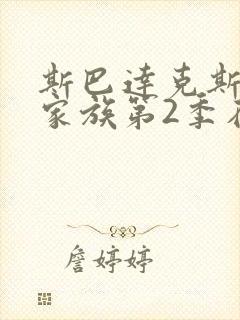 斯巴达克斯
家族第2季在
詹婷婷